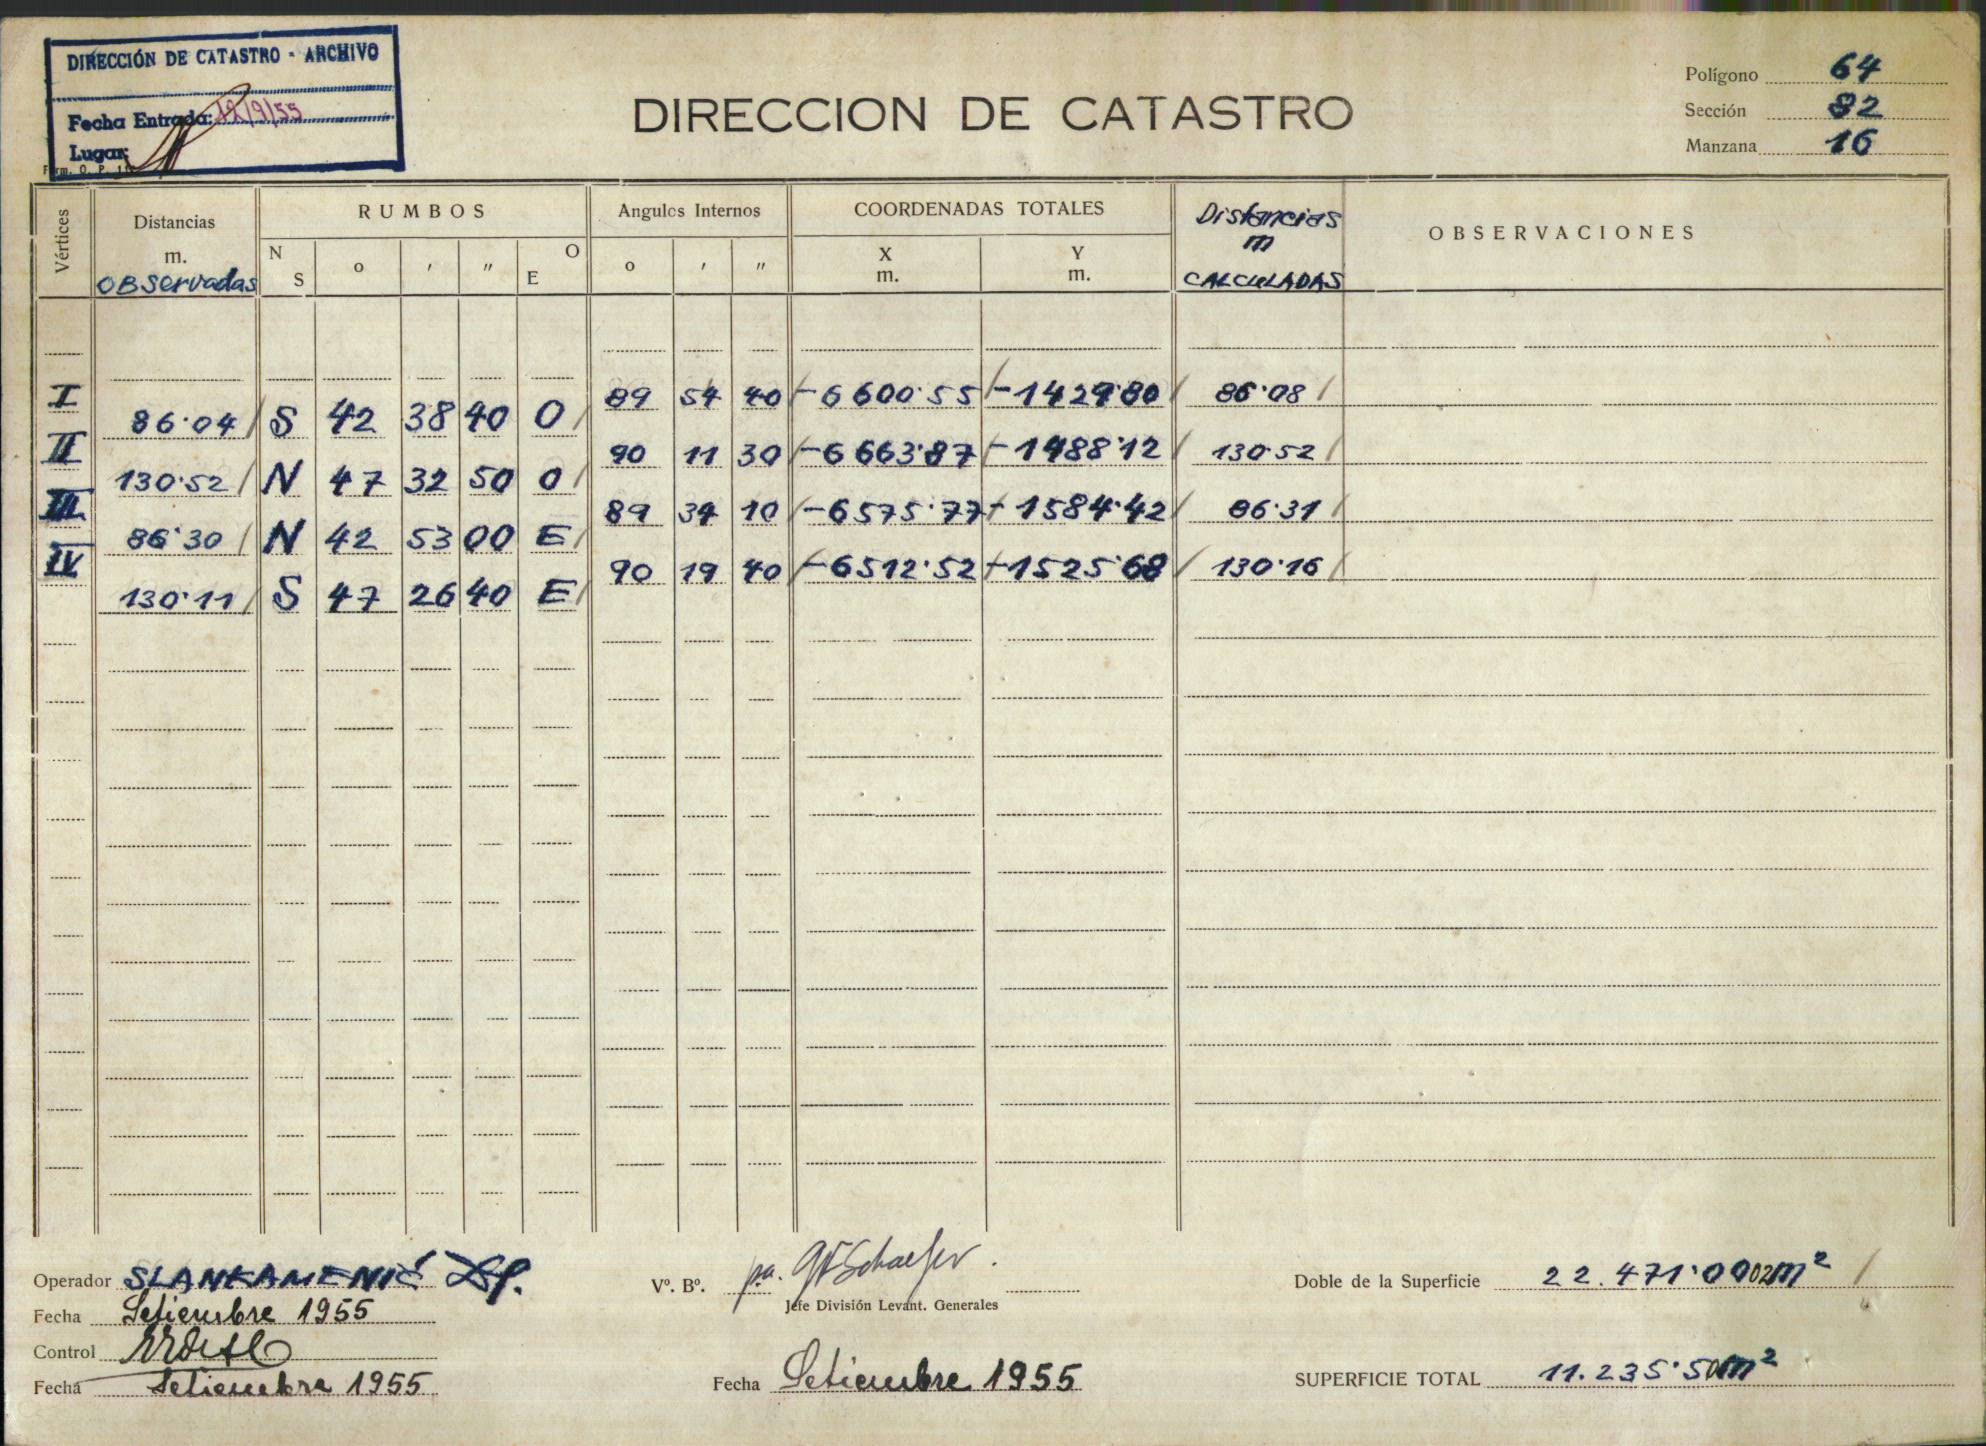 DIRECCIÓN DE CATASTRO - ARCHIVO
Fecha Entrada: 12/9/55
Lugar:
Form. O. P.
DIRECCION DE CATASTRO
Polígono 64
Sección 82
Manzana 16
Vértices
Distancias
m.
OBServadas
RUMBOS
N S
o ' "
O E
Angulos Internos
o ' "
COORDENADAS TOTALES
X
m.
Y
m.
Distancias
m
CALCULADAS
OBSERVACIONES
I 89 54 40 -6600.55 -1429.80 86.08
86.04 S 42 38 40 O
II 90 11 30 -6663.87 -1488.12 130.52
130.52 N 47 32 50 O
III 89 34 10 -6575.77 -1584.42 86.31
86.30 N 42 53 00 E
IV 90 19 40 -6512.52 -1525.68 130.16
130.11 S 47 26 40 E
Operador SLANKAMENIĆ
Fecha Setiembre 1955
Control
Fecha Setiembre 1955
Vº. Bº. p.a.
Jefe División Levant. Generales
Fecha Setiembre 1955
Doble de la Superficie 22.471.0002m²
SUPERFICIE TOTAL 11.235.50m²